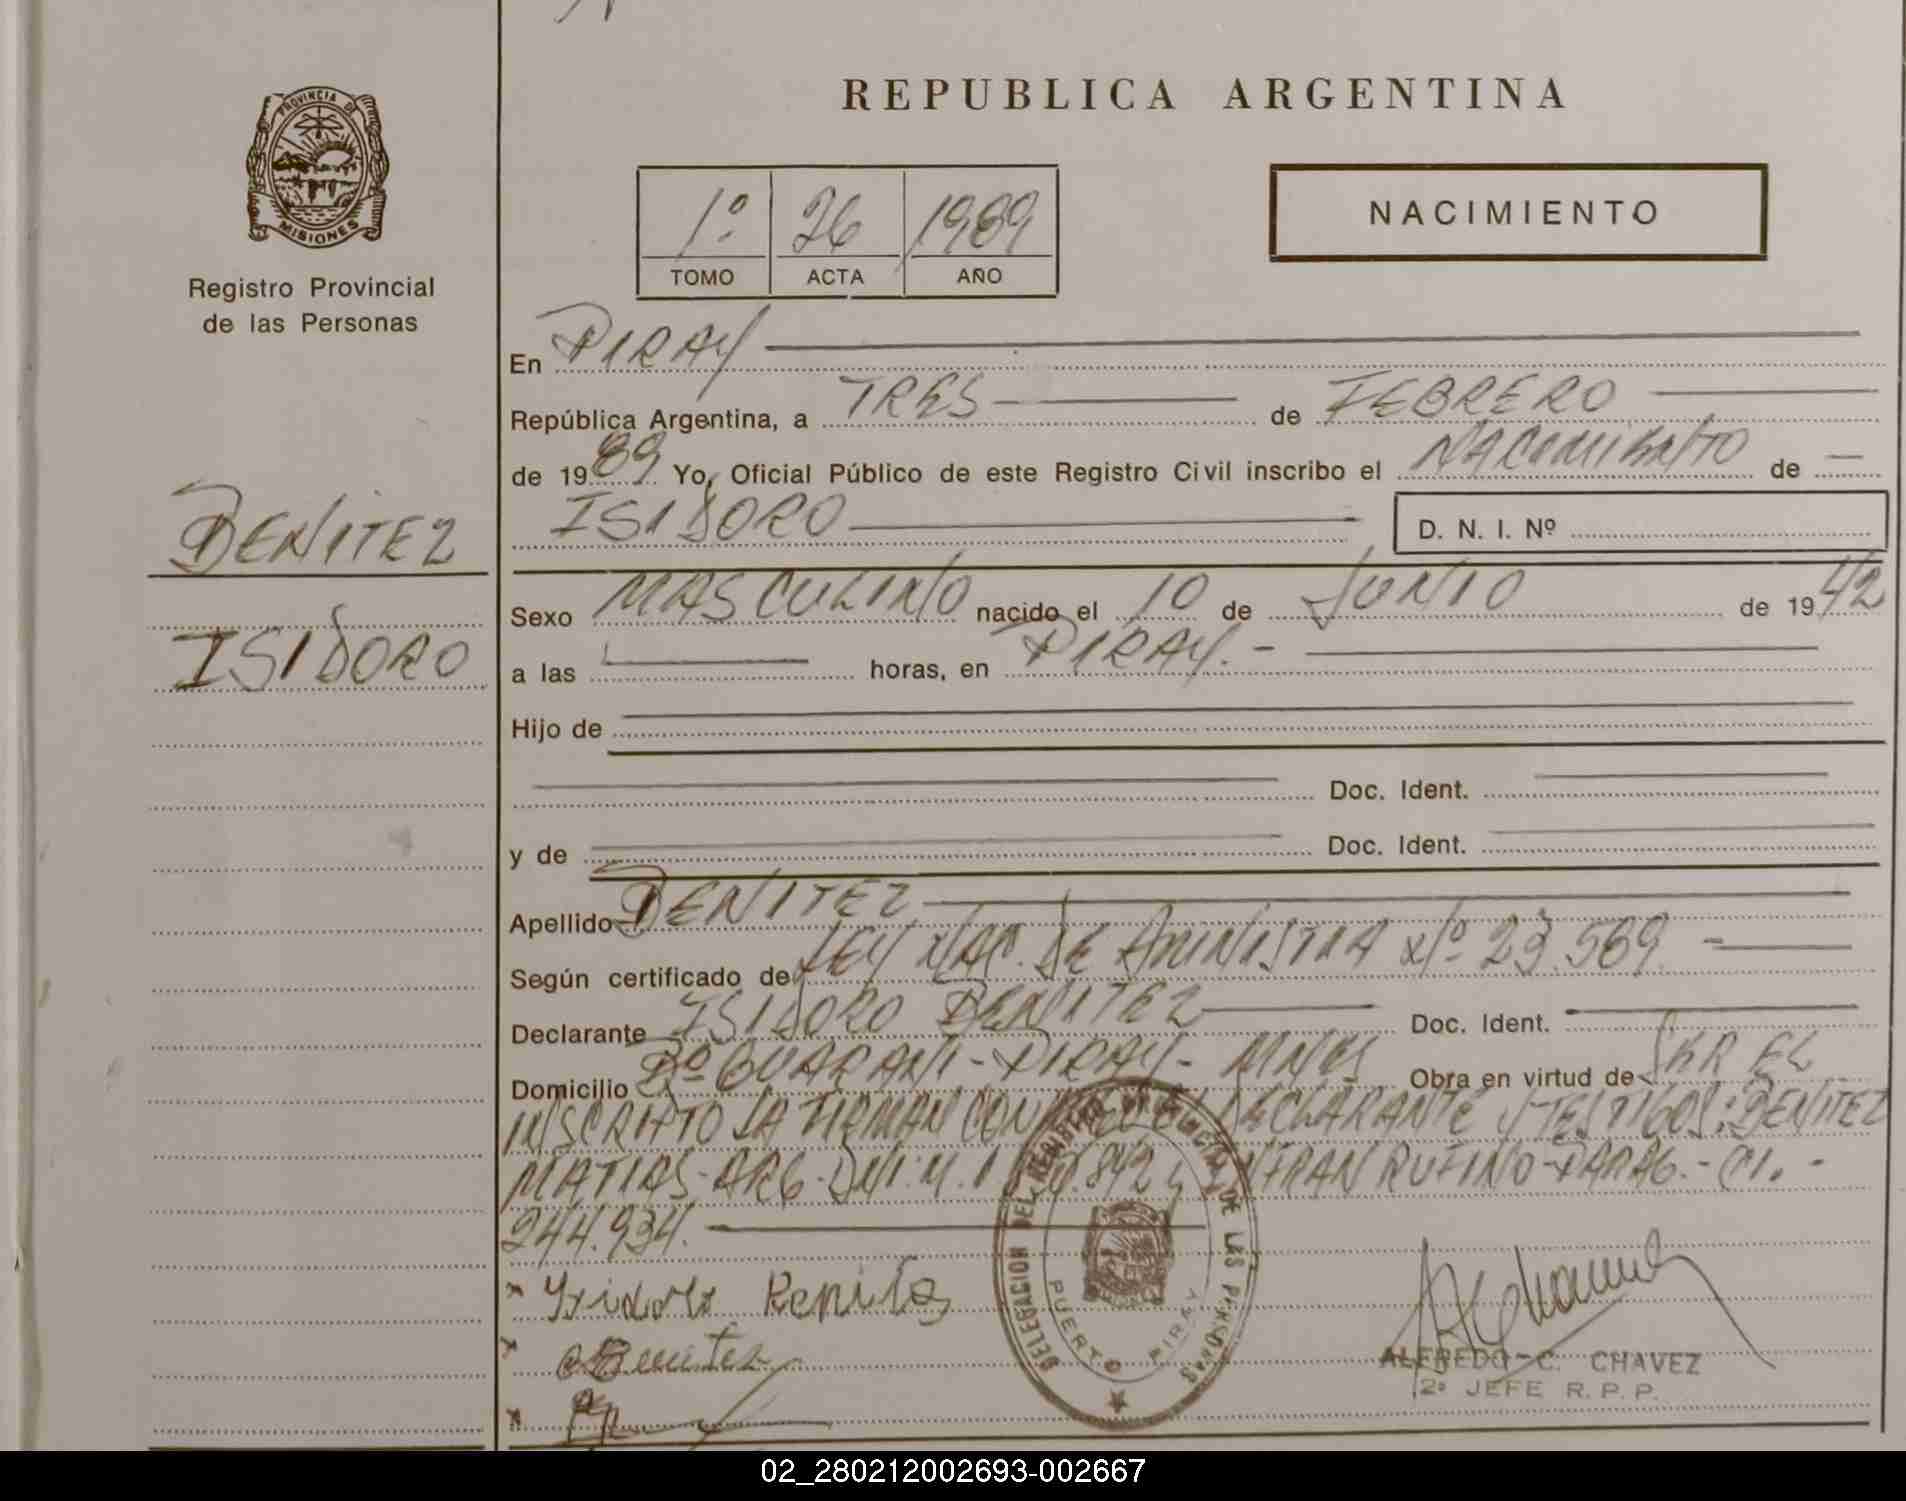 REPUBLICA ARGENTINA
PROVINCIA DE
MISIONES
Registro Provincial
de las Personas
1º 26 1989
TOMO ACTA AÑO
NACIMIENTO
En PIRAY
República Argentina, a TRES de FEBRERO
de 1989. Yo, Oficial Público de este Registro Civil inscribo el NACIMIENTO de
ISIDORO D. N. I. Nº
BENITEZ
ISIDORO
Sexo MASCULINO nacido el 10 de JUNIO de 1942
a las horas, en PIRAY.-
Hijo de
Doc. Ident.
y de Doc. Ident.
Apellido BENITEZ
Según certificado de LEY NAC. DE AMNISTIA Nº 23.569.-
Declarante ISIDORO BENITEZ Doc. Ident.
Domicilio Bº GUARANI - PIRAY - MNES Obra en virtud de SER EL
INSCRIPTO LA FIRMAN CON EL DECLARANTE TESTIGOS: BENITEZ
MATIAS-ARG. DNI. M. RUFINO-PARAG.- CI.-
244.934.
DELEGACION DEL REGISTRO PROVINCIAL DE LAS PERSONAS
PUERTO PIRAY
ALFREDO C. CHAVEZ
2º JEFE R. P. P.
02_280212002693-002667